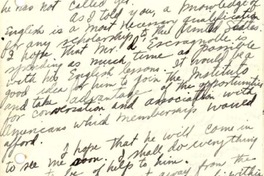 he was not called yet.
As I told you, a knowledge of
English is a most necessary qualification
for any scholarship to the United States.
I hope that Mr. d'Escragnolle is
spending as much time as possible
with his English lessons. It would be a
good idea for him to join the Instituto
and take advantage of the opportunities
for conversation and association with
Americans which membership would
afford.
I hope that he will come in
to see me soon. I shall do everything
to be of help to him.
away from the
within